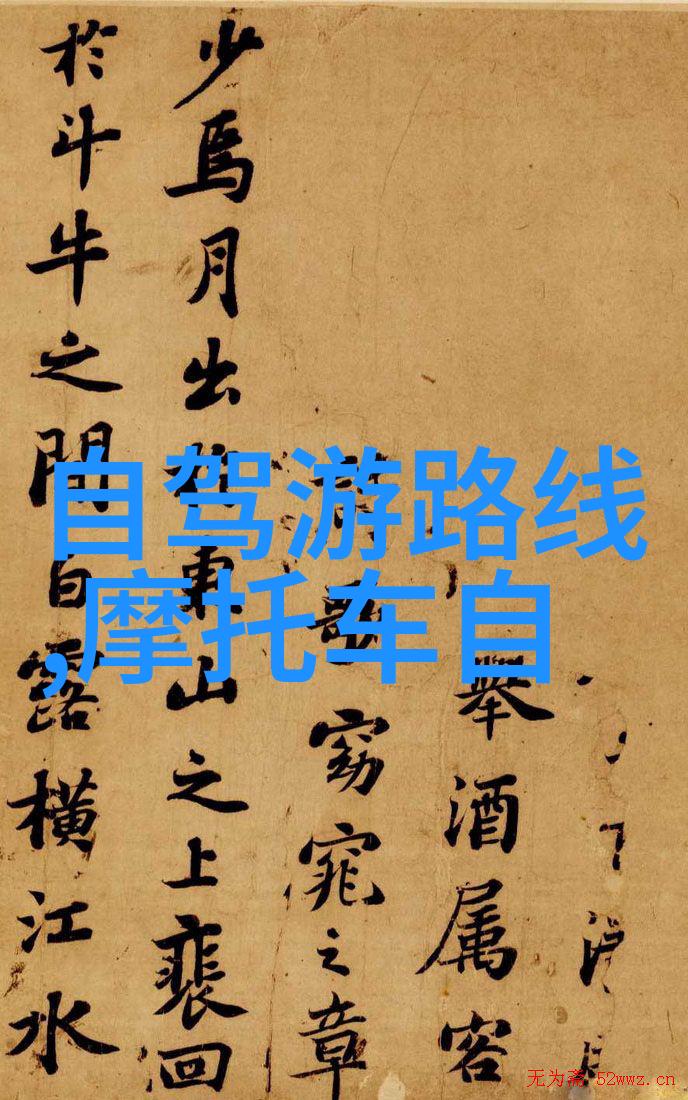 自驾游路线
,摩托车自
舉酒属客
歌窈窕之章
少焉月出於東山之上裴回
於斗牛之間白露橫江水
无为斋 52wwz.cn